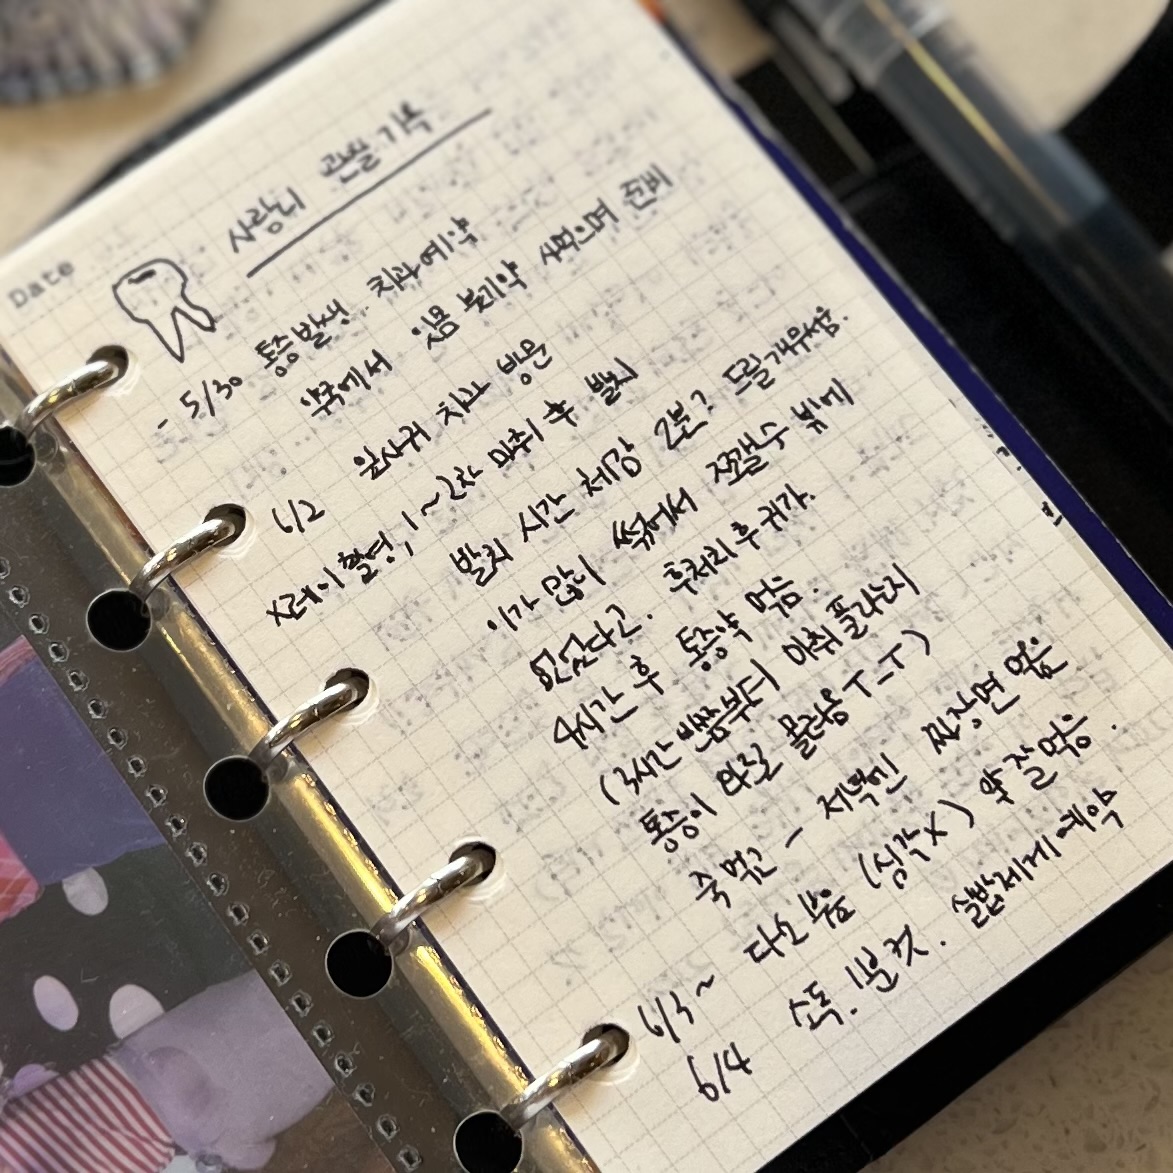 Date
사랑니 관찰기록
- 5/30 통증발생 치과예약
약국에서 잇몸 붓기약 사먹으며 준비
6/2 압사귀 치과 방문
X레이 촬영, 1~2차 마취 후 발치
발치 시간 체감 2분? 드릴개무섭.
이가 많이 썩어서 쪼갤수 밖에
없었다고. 후처리 후 귀가.
4시간 후 통증약 먹음.
(3시간 반쯤부터 마취 풀라는지
통증이 와질 몰려옴 T_T)
죽 먹고 - 저녁엔 짜장면 먹음
6/3~ 다소 부음 (심각X) 약 잘 먹음.
6/4 소독. 1분 컷. 실밥제거 예약